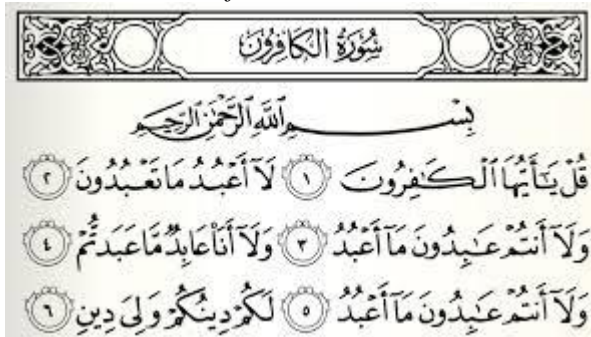 سُورَةُ الْكَافِرُونَ
بِسْمِ اللَّهِ الرَّحْمَٰنِ الرَّحِيمِ
قُلْ يَـٰٓأَيُّهَا ٱلْكَـٰفِرُونَ ١ لَآ أَعْبُدُ مَا تَعْبُدُونَ ٢
وَلَآ أَنتُمْ عَـٰبِدُونَ مَآ أَعْبُدُ ٣ وَلَآ أَنَا۠ عَابِدٌ مَّا عَبَدتُّمْ ٤
وَلَآ أَنتُمْ عَـٰبِدُونَ مَآ أَعْبُدُ ٥ لَكُمْ دِينُكُمْ وَلِىَ دِينِ ٦